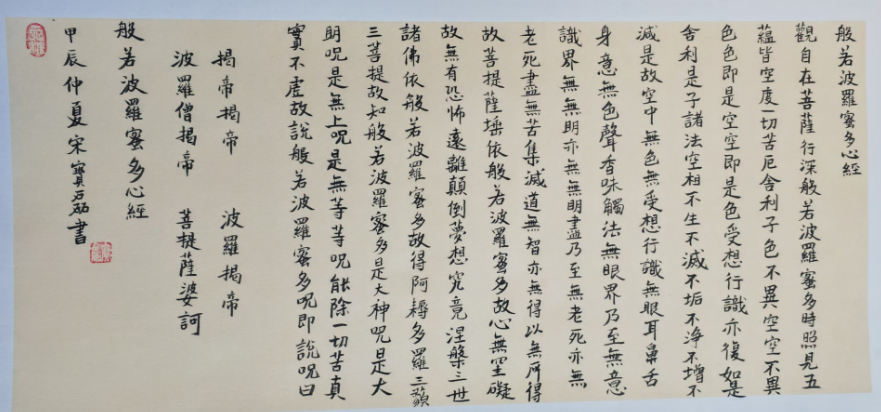 般若波羅蜜多心經
觀自在菩薩行深般若波羅蜜多時照見五
蘊皆空度一切苦厄舍利子色不異空空不異
色色即是空空即是色受想行識亦復如是
舍利是子諸法空相不生不滅不垢不淨不增不
減是故空中無色無受想行識無眼耳鼻舌
身意無色聲香味觸法無眼界乃至無意
識界無無明亦無無明盡乃至無老死亦無
老死盡無苦集滅道無智亦無得以無所得
故菩提薩埵依般若波羅蜜多故心無罣礙
故無有恐怖遠離顛倒夢想究竟涅槃三世
諸佛依般若波羅蜜多故得阿耨多羅三藐
三菩提故知般若波羅蜜多是大神咒是大
明咒是無上咒是無等等咒能除一切苦真
實不虛故說般若波羅蜜多咒即說咒曰
揭帝揭帝 波羅揭帝
波羅僧揭帝 菩提薩婆訶
般若波羅蜜多心經
甲辰仲夏宋寶磊書